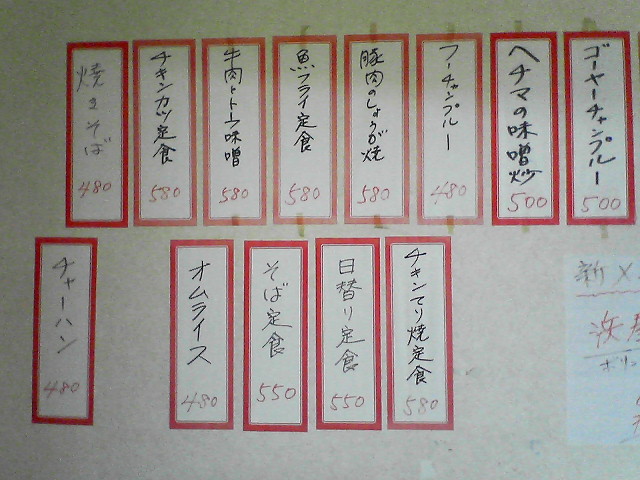 ゴーヤーチャンプルー
500
ヘチマの味噌炒
500
フーチャンプルー
480
豚肉のしょうが焼
580
魚フライ定食
580
牛肉とトーフ味噌
580
チキンカツ定食
580
焼きそば
480
チキンてり焼定食
580
日替り定食
550
そば定食
550
オムライス
480
チャーハン
480
新メ